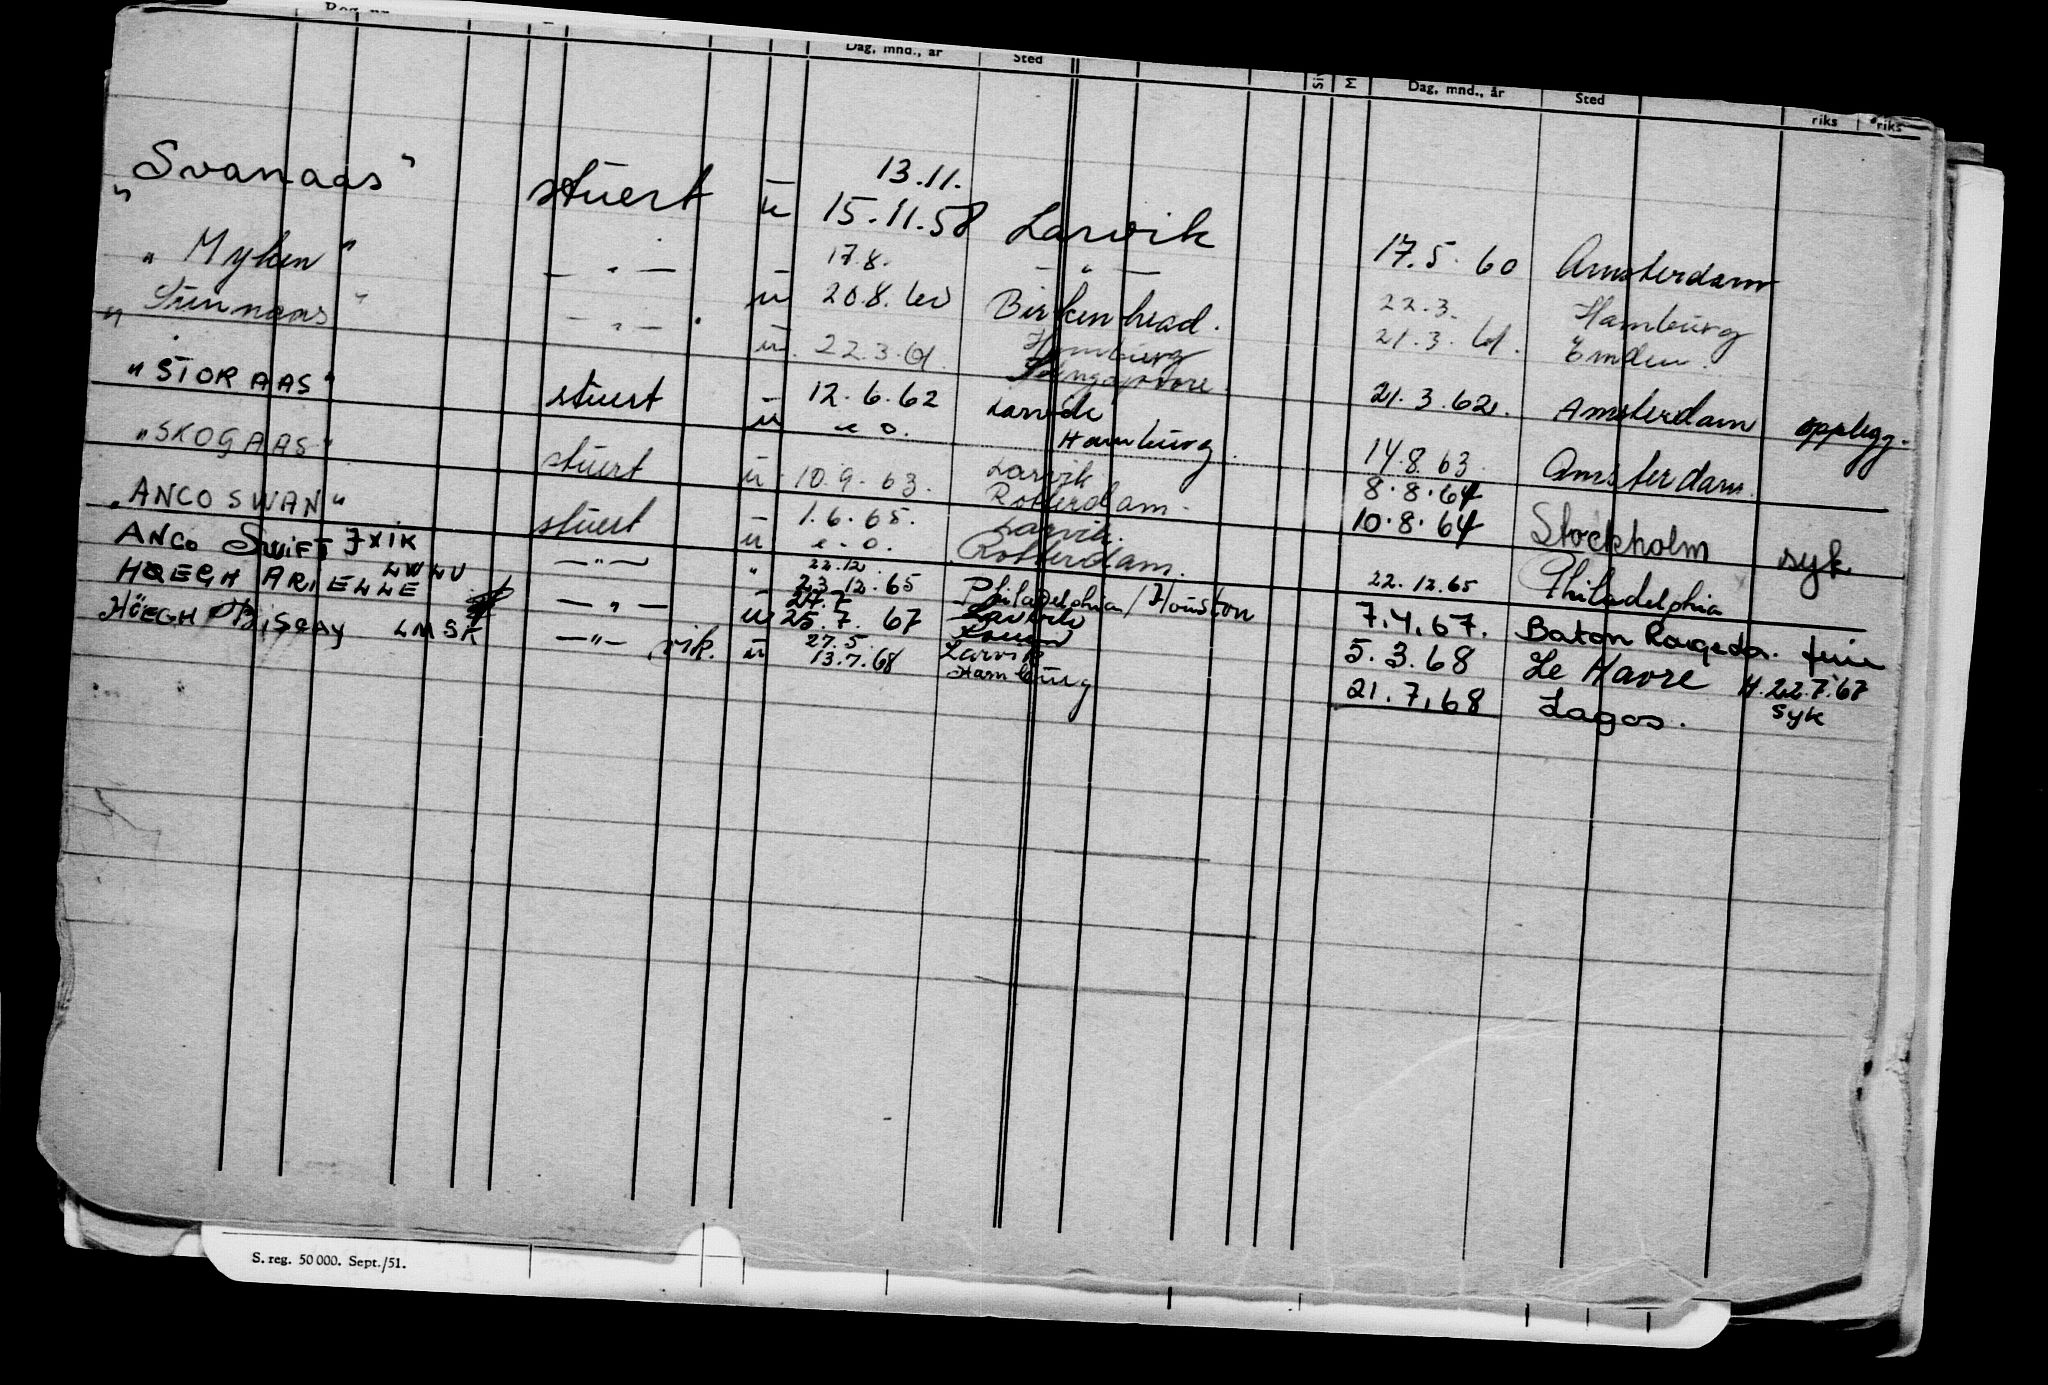 Dag, mnd., år Sted Dag, mnd., år Sted riks riks
"Svanaas" stuert u 13.11. 15.11.58 Larvik 17.5.60 Amsterdam
"Myken" — " — u 17.8. 20.8. Birkenhead. — " — 22.3. 21.3.61. Hamburg Emden.
— " — u. 22.3.61. Hamburg 21.3.62. Amsterdam opplegg.
"STORAAS" stuert u 12.6.62 e o. Larvik Hamburg. 14.8.63. Amsterdam.
"SKOGAAS" stuert u 10.9.63. Larvik Rotterdam. 8.8.64 10.8.64 Stockholm syk
"ANCO SWAN" stuert u 1.6.65. e.o. Larvik. Rotterdam. 22.12.65 Philadelphia
ANCO SWIFT JXIK — " — " 22.12. 23.12.65 Philadelphia/Houston 7.4.67. Baton ferie
HØEGH ARIELLE LWLU — " — u 25.7.67 5.3.68 Le Havre H.22.7.67 syk
HÖEGH BISCAY LMSK — " — vik. u 27.5. 13.7.68 Larvik Hamburg 21.7.68 Lagos.
S. reg. 50 000. Sept./51.